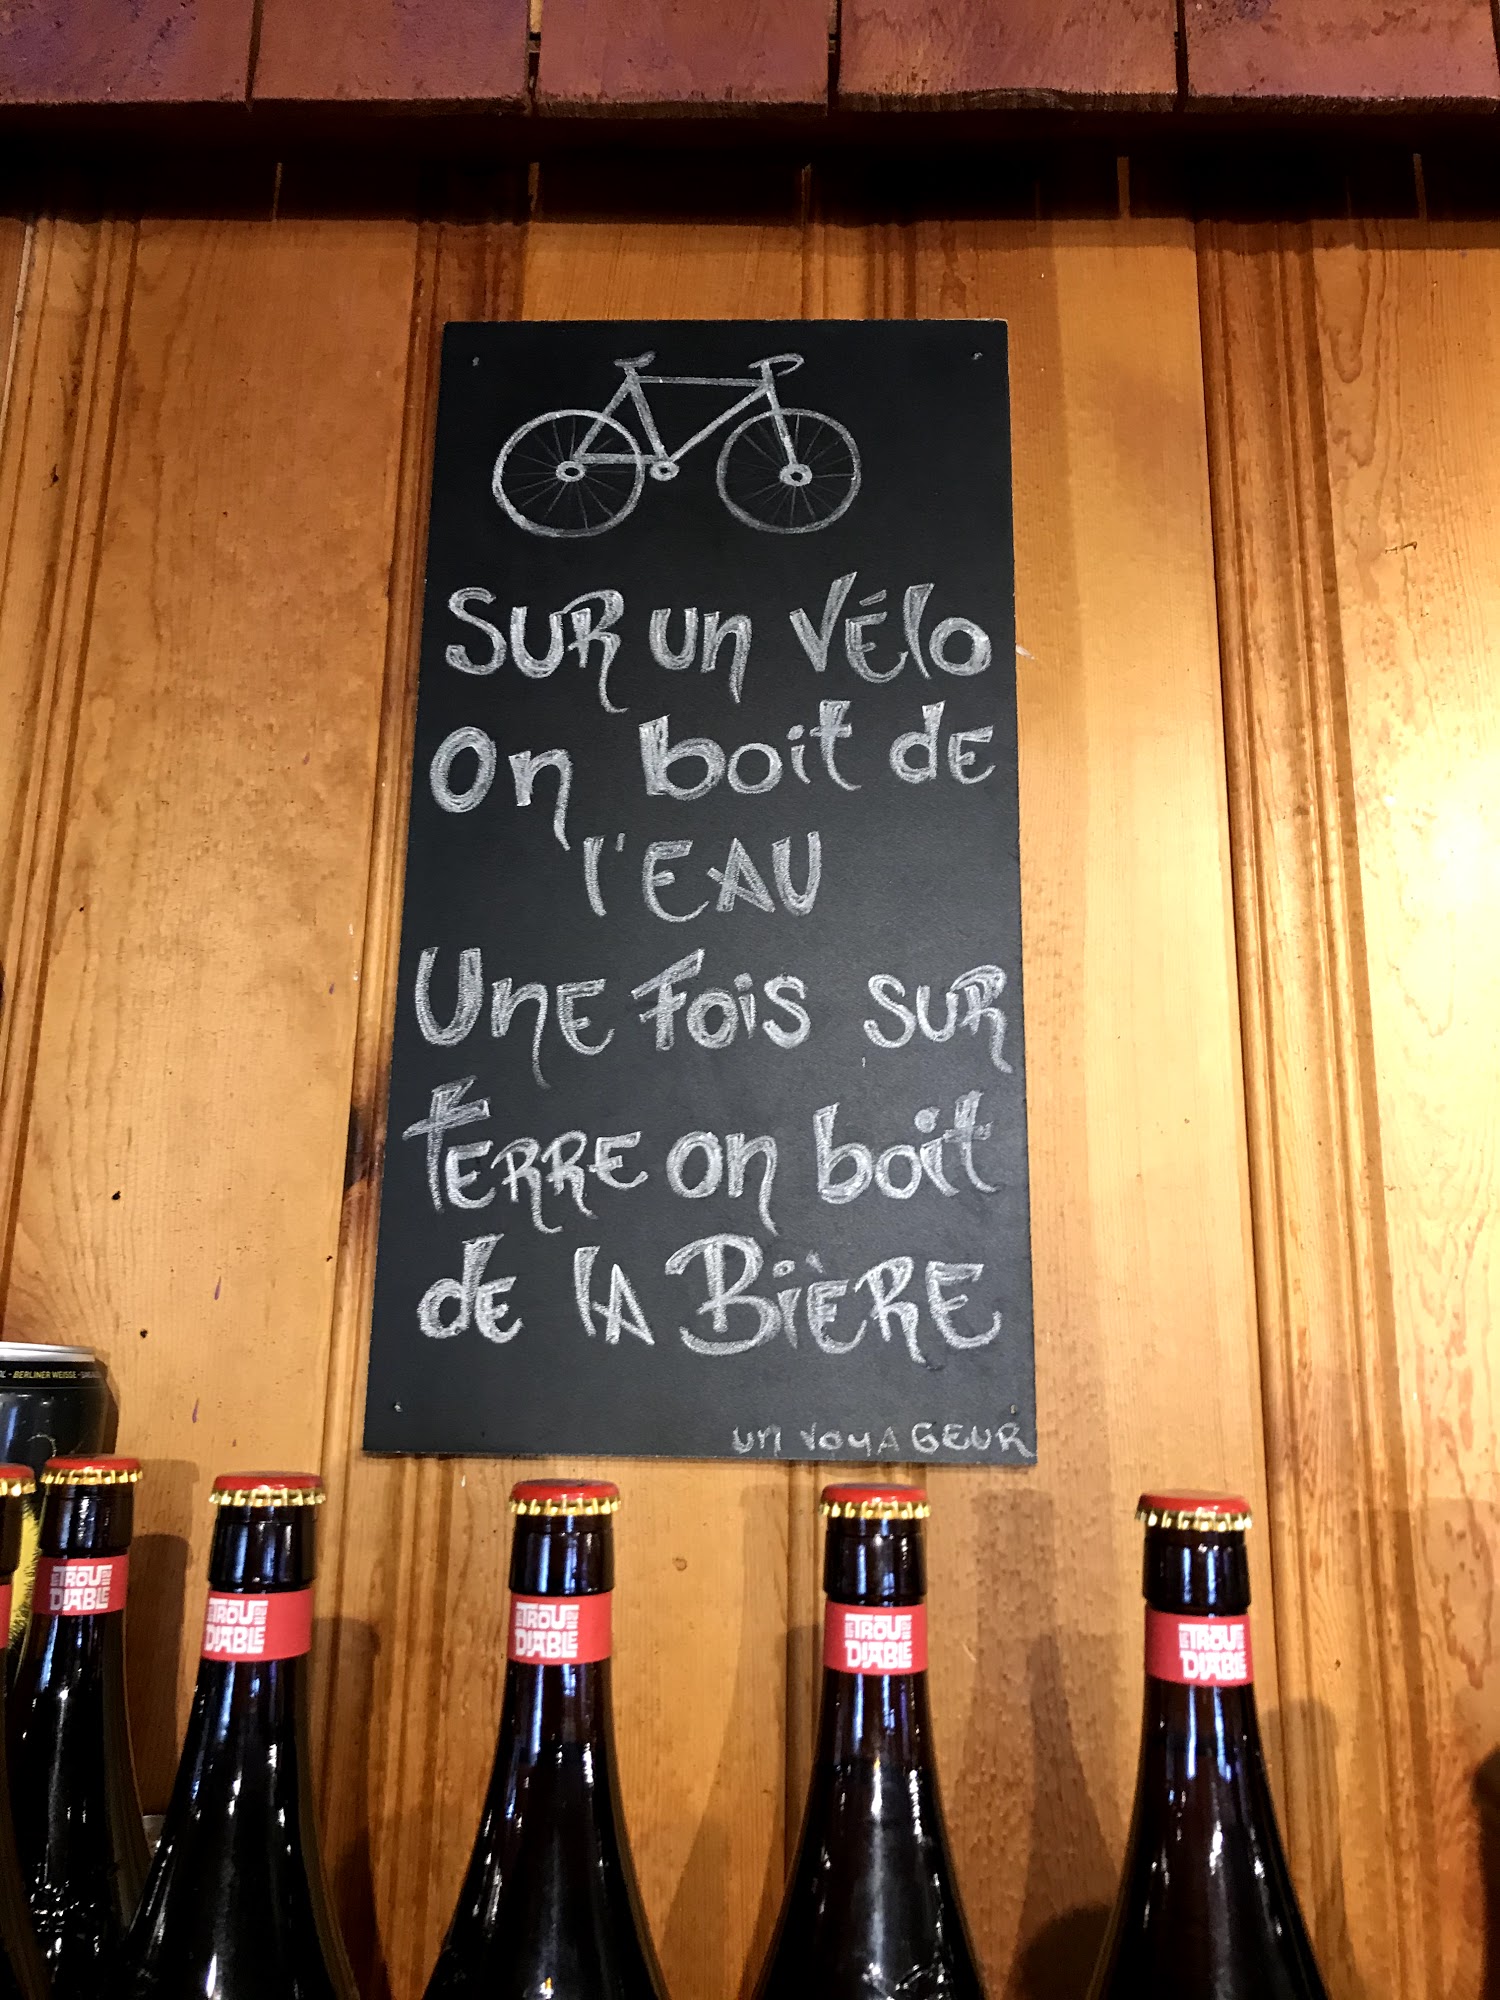 Sur un vélo
On boit de
l'eau
Une fois sur
terre on boit
de la Bière
un voyageur
BERLINER WEISSE
LE TROU DU DIABLE
LE TROU DU DIABLE
LE TROU DU DIABLE
LE TROU DU DIABLE
LE TROU DU DIABLE